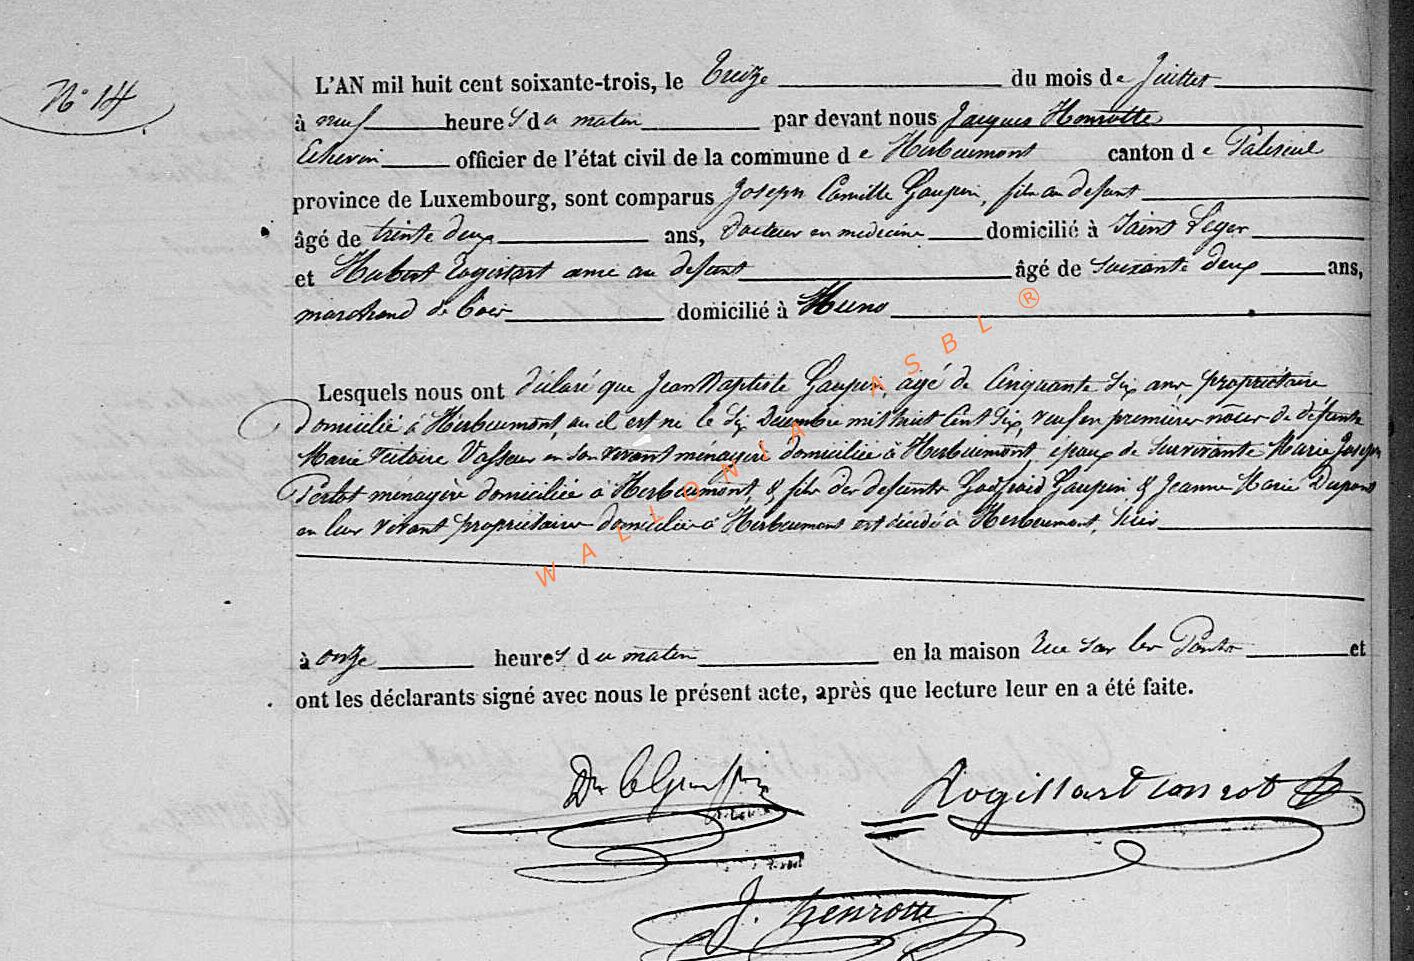 N° 14
L'AN mil huit cent soixante-trois, le Treize du mois de Juillet
à neuf heures du matin par devant nous Jacques Henrotte
Echevin officier de l'état civil de la commune de Herbeumont canton de Paliseul
province de Luxembourg, sont comparus Joseph Camille Gaupin, fils au defunt
âgé de trente deux ans, Docteur en medecine domicilié à Saint Leger
et Hubert Rogissart ami au defunt âgé de soixante deux ans,
marchand de bois domicilié à Muno
Lesquels nous ont déclaré que Jean Baptiste Gaupin, agé de Cinquante six ans, propriétaire
domicilié à Herbeumont, où il est né le six Decembre mil huit Cent six, veuf en premières noces de défunte
Marie Victoire Vasseur en son vivant ménagère domiciliée à Herbeumont, époux de survivante Marie Joseph
Pertot ménagère domiciliée à Herbeumont, & fils des defunts Godfroid Gaupin & Jeanne Marie Dupont
en leur vivant propriétaires domiciliés à Herbeumont est décédé à Herbeumont, hier
à onze heures du matin en la maison Rue sur les Ponts et
ont les déclarants signé avec nous le présent acte, après que lecture leur en a été faite.
WALLONIA ASBL ®
Dr C Gaupin Rogissart
J. henrotte